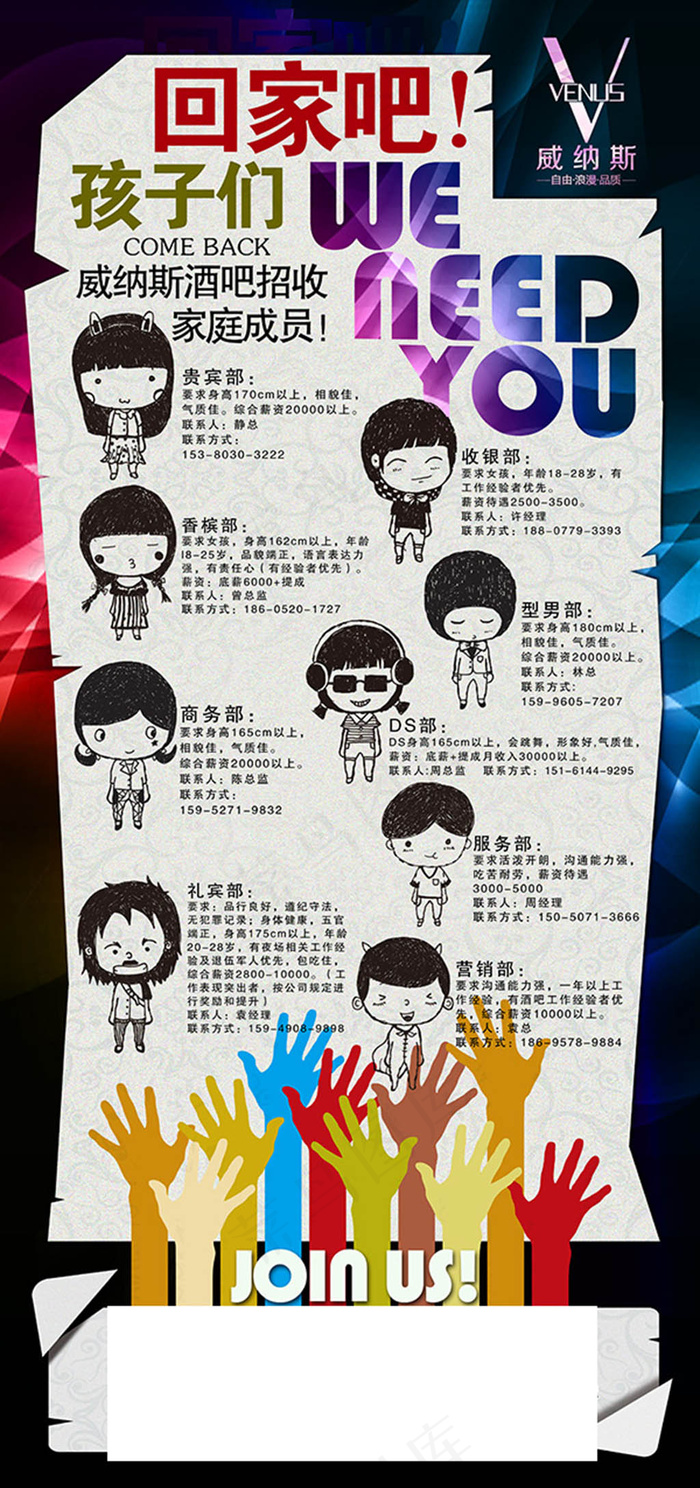 回家吧！
孩子们
COME BACK
威纳斯酒吧招收
家庭成员！
WE
NEED
YOU
VENUS
威纳斯
自由·浪漫·品质
贵宾部：
要求身高170cm以上，相貌佳，
气质佳。综合薪资20000以上。
联系人：静总
联系方式：
153-8030-3222
收银部：
要求女孩，年龄18-28岁，有
工作经验者优先。
薪资待遇2500-3500。
联系人：许经理
联系方式：188-0779-3393
香槟部：
要求女孩，身高162cm以上，年龄
18-25岁，品貌端正，语言表达力
强，有责任心（有经验者优先）。
薪资：底薪6000+提成
联系人：曾总监
联系方式：186-0520-1727
型男部：
要求身高180cm以上，
相貌佳，气质佳。
综合薪资20000以上。
联系人：林总
联系方式：
159-9605-7207
商务部：
要求身高165cm以上，
相貌佳，气质佳。
综合薪资20000以上。
联系人：陈总监
联系方式：
159-5271-9832
DS部：
DS身高165cm以上，会跳舞，形象好,气质佳，
薪资：底薪+提成月收入30000以上。
联系人:周总监 联系方式：151-6144-9295
服务部：
要求活泼开朗，沟通能力强，
吃苦耐劳，薪资待遇
3000-5000
联系人：周经理
联系方式：150-5071-3666
礼宾部：
要求：品行良好，遵纪守法，
无犯罪记录；身体健康，五官
端正，身高175cm以上，年龄
20-28岁，有夜场相关工作经
验及退伍军人优先，包吃住，
综合薪资2800-10000。（工
作表现突出者，按公司规定进
行奖励和提升）
联系人：袁经理
联系方式：159-4908-9898
营销部：
要求沟通能力强，一年以上工
作经验，有酒吧工作经验者优
先，综合薪资10000以上。
联系人：袁总
联系方式：186-9578-9884
JOIN US!